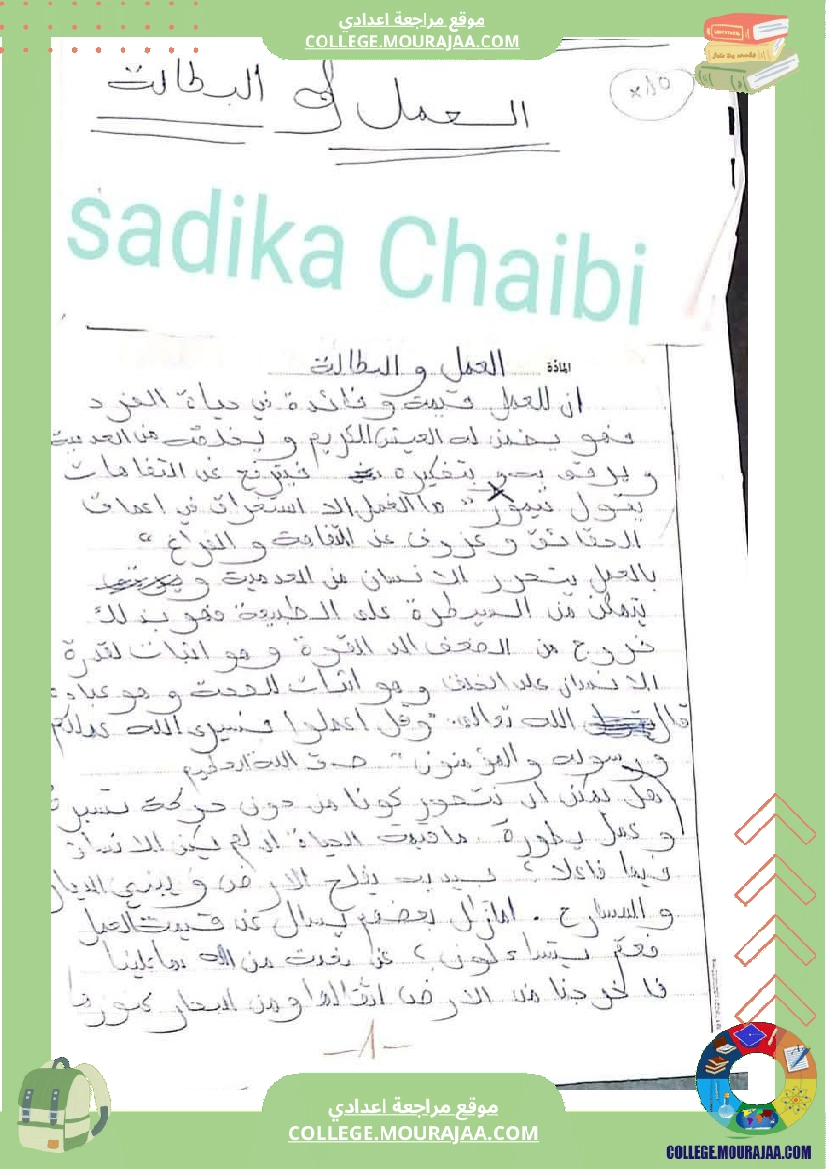 موقع مراجعة اعدادي
COLLEGE.MOURAJAA.COM
x10
العمل و البطالة
sadika Chaibi
المادّة
العمل و البطالة
ان للعمل قيمة و فائدة في حياة الفرد
فهو يضمن له العيش الكريم و يخلصه من العدمية
و يرقى بتفكيره فيترفع عن التفاهات
يقول تيمور " ما العمل الا استغراق في اعماق
الحقائق و عزوف عن التفاهة و الفراغ "
بالعمل يتحرر الانسان من العدمية و
يتمكن من السيطرة على الطبيعة فهو بذلك
خروج من الضعف الى القوة و هو اثبات لقدرة
الانسان على الخلق و هو اثبات للصحة و هو عبادة
قال الله تعالى "وقل اعملوا فسيرى الله عملكم
و رسوله والمؤمنون" صدق الله العظيم
هل يمكن ان نتصور كونا من دون حركة تسيره
و عمل يطوره ما قيمة الحياة ان لم يكن الانسان
فيها فاعلا ؟ بيديه يفلح الارض و يبني الديار
و المسارح . امازال بعضهم يسال عن قيمة العمل
فعم يتساءلون ؟ عن نعمة من الله بها علينا
فاخرجنا من الارض اثقالها ومن البحار كنوزها
-1-
موقع مراجعة اعدادي
COLLEGE.MOURAJAA.COM
COLLEGE.MOURAJAA.COM